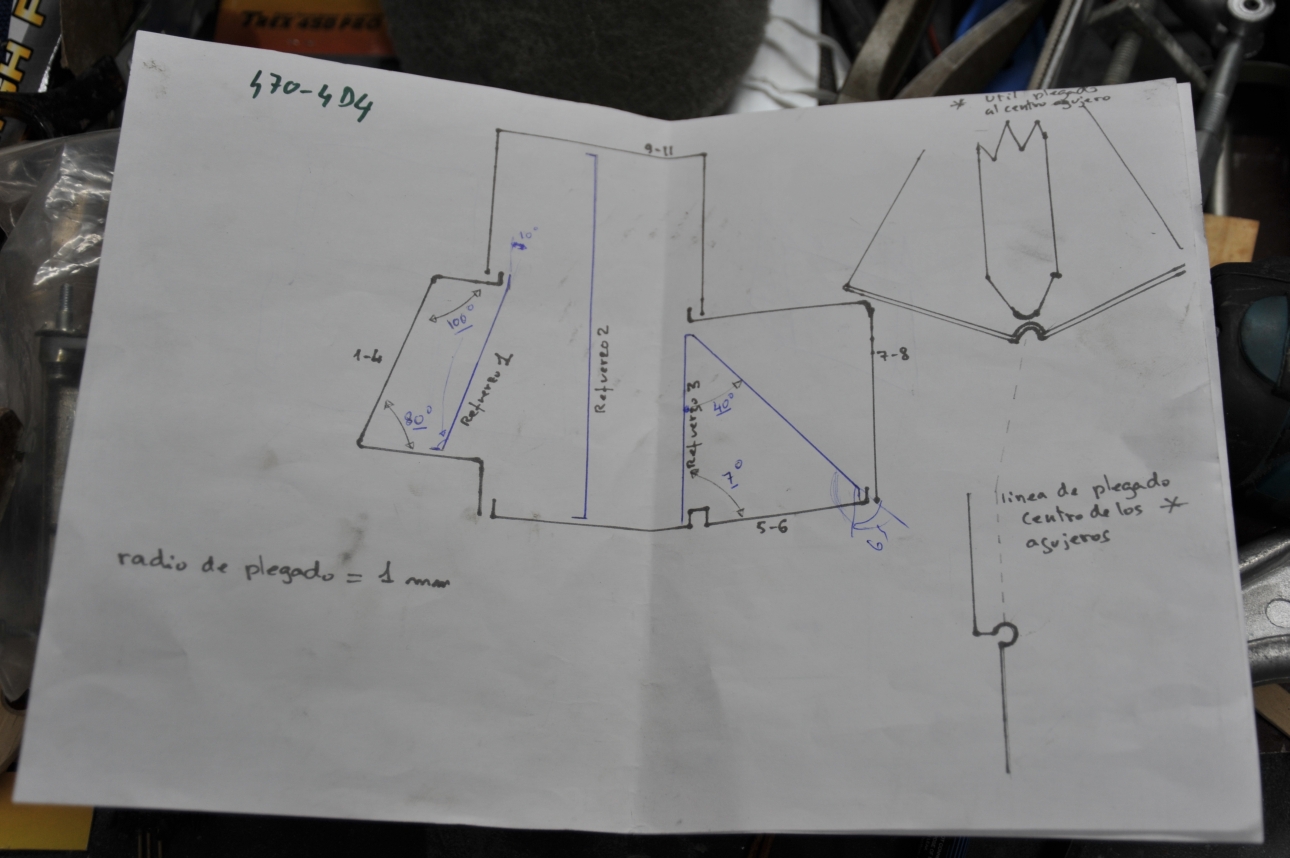 TREX 450 PRO
470-4D4
* util plegado
al centro agujero
9-11
10°
100°
1-4
Refuerzo 1
80°
Refuerzo 2
Refuerzo 3
40°
7-8
7°
5-6
linea de plegado
centro de los *
agujeros
radio de plegado = 1 mm